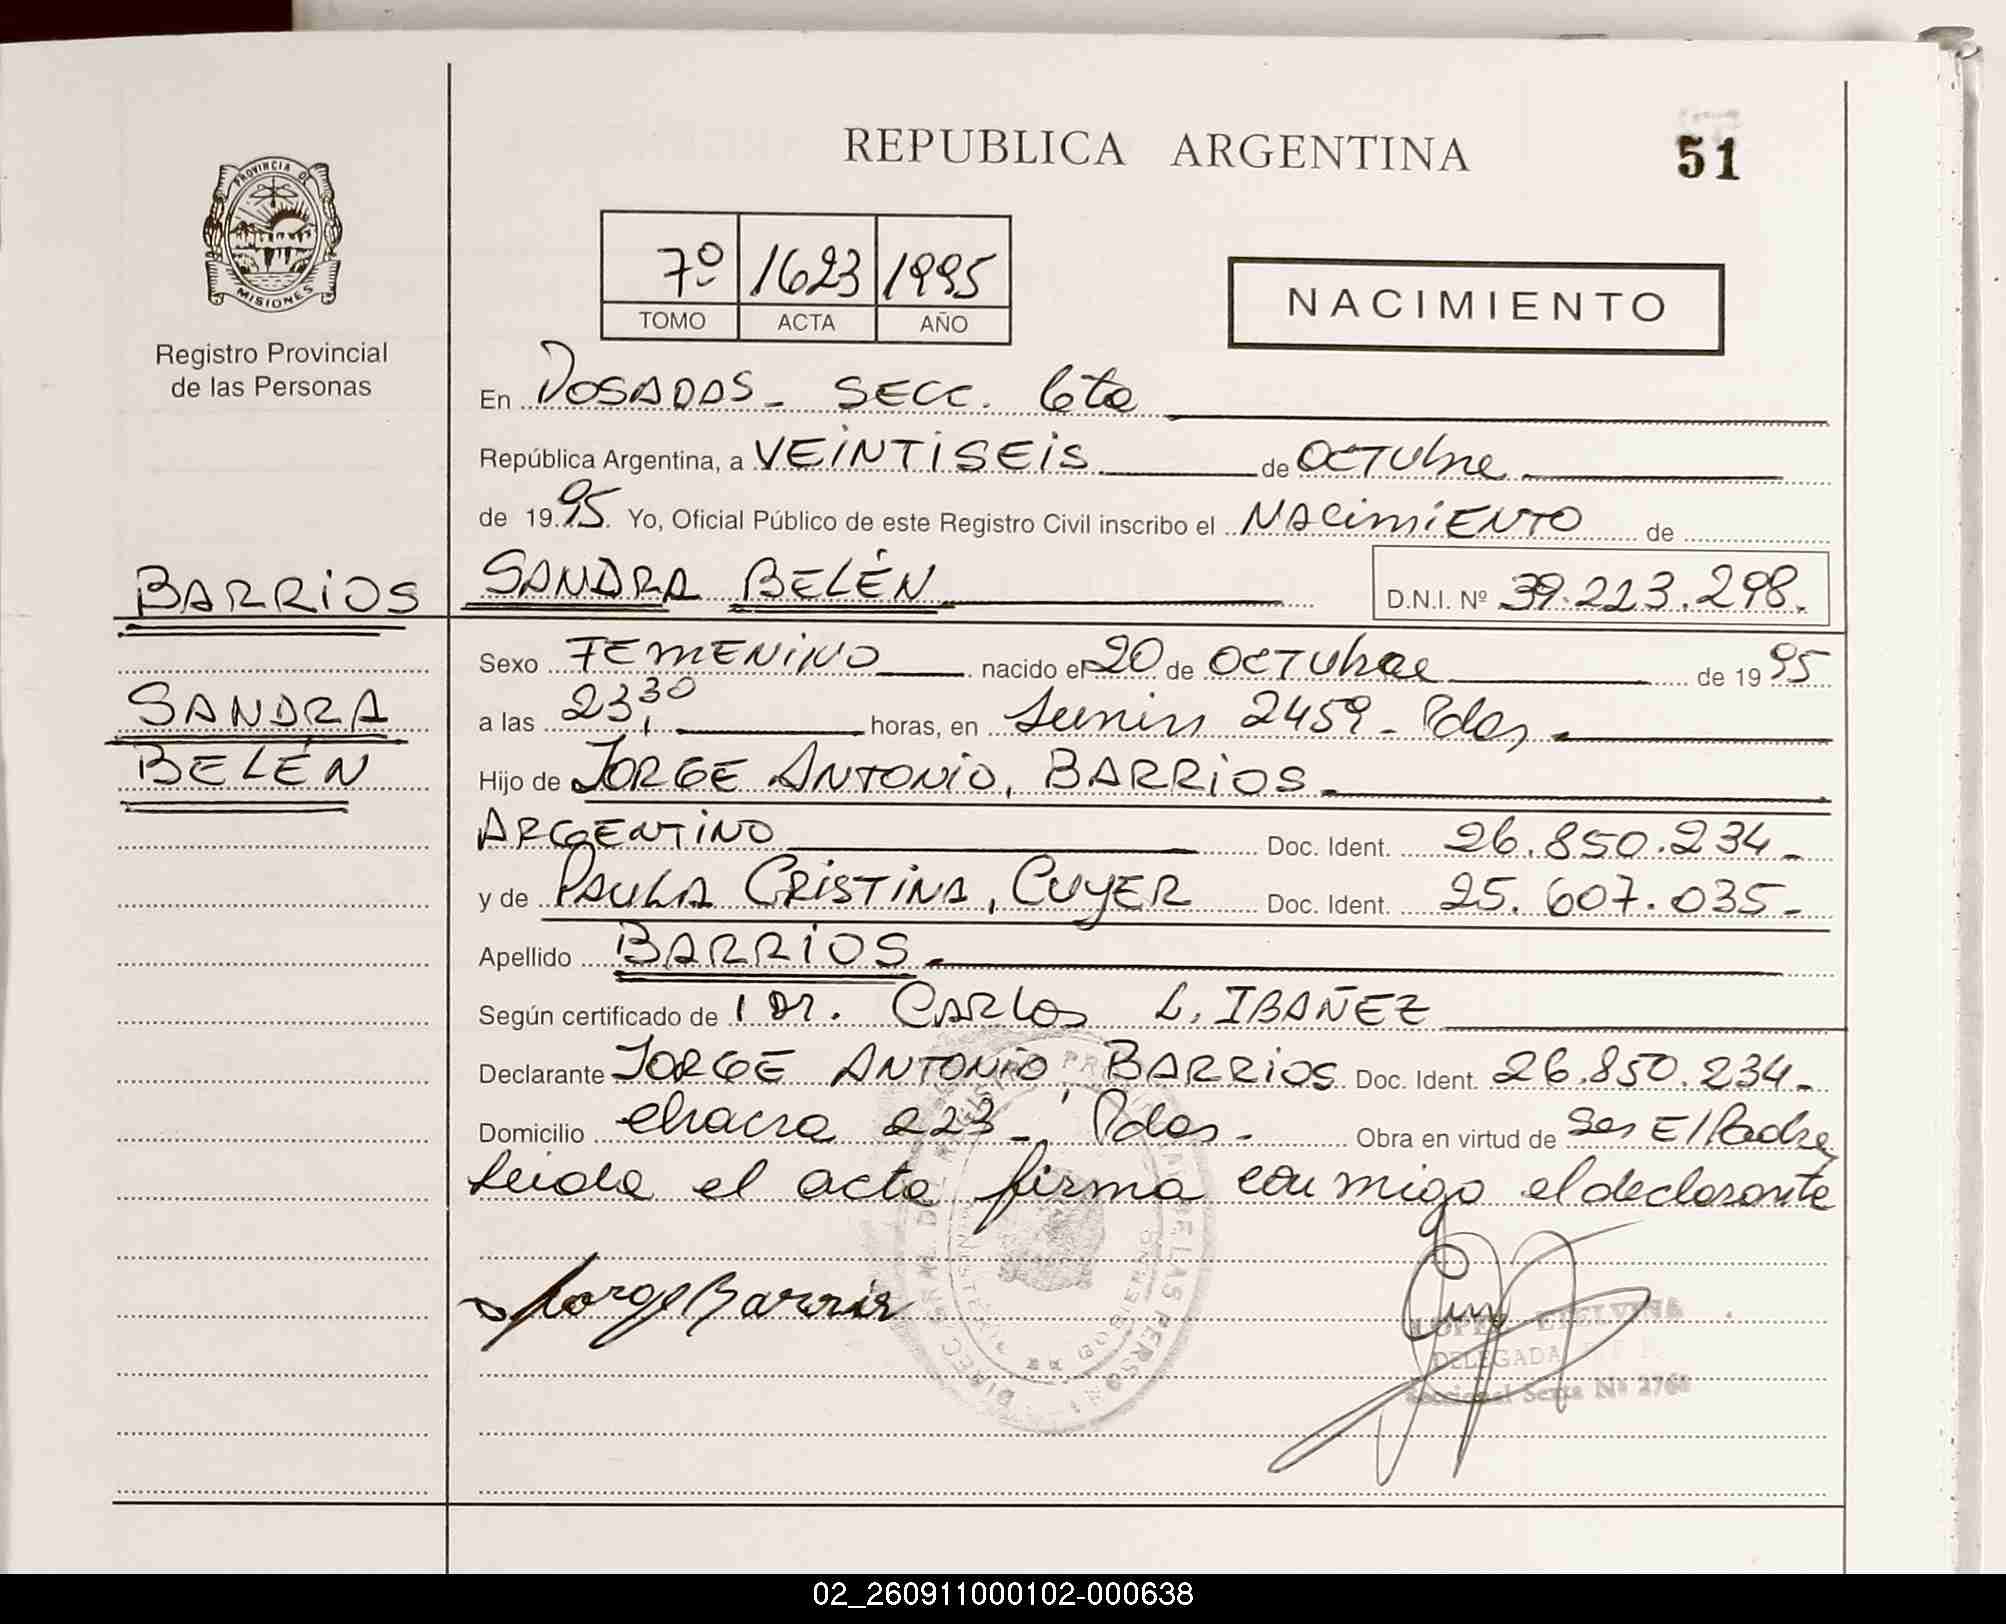 REPUBLICA ARGENTINA
51
PROVINCIA DE
MISIONES
Registro Provincial
de las Personas
7º 1623 1995
TOMO ACTA AÑO
NACIMIENTO
En POSADAS - SECC. 6ta
República Argentina, a VEINTISEIS de OCTUbre
de 1995. Yo, Oficial Público de este Registro Civil inscribo el NACIMIENTO de
BARRIOS SANDRA BELÉN D.N.I. Nº 39.213.298.
Sexo FEMENINO nacido el 20 de OCTUbre de 1995
SANDRA
a las 23,30 horas, en Junin 2459 - Pdas.
BELÉN
Hijo de JORGE ANTONIO, BARRIOS.
ARGENTINO Doc. Ident. 26.850.234-
y de PAULA CRISTINA, CUYER Doc. Ident. 25.607.035-
Apellido BARRIOS.
Según certificado de 1 Dr. CARLOS L. IBAÑEZ
Declarante JORGE ANTONIO BARRIOS Doc. Ident. 26.850.234-
Domicilio chacra 223 - Pdas. Obra en virtud de Ser El Padre
Leida el acta firma conmigo el declarante
Jorge Barrios
LOPEZ ETELVINA
DELEGADA
Seccional Sexta Nº 2768
02_260911000102-000638